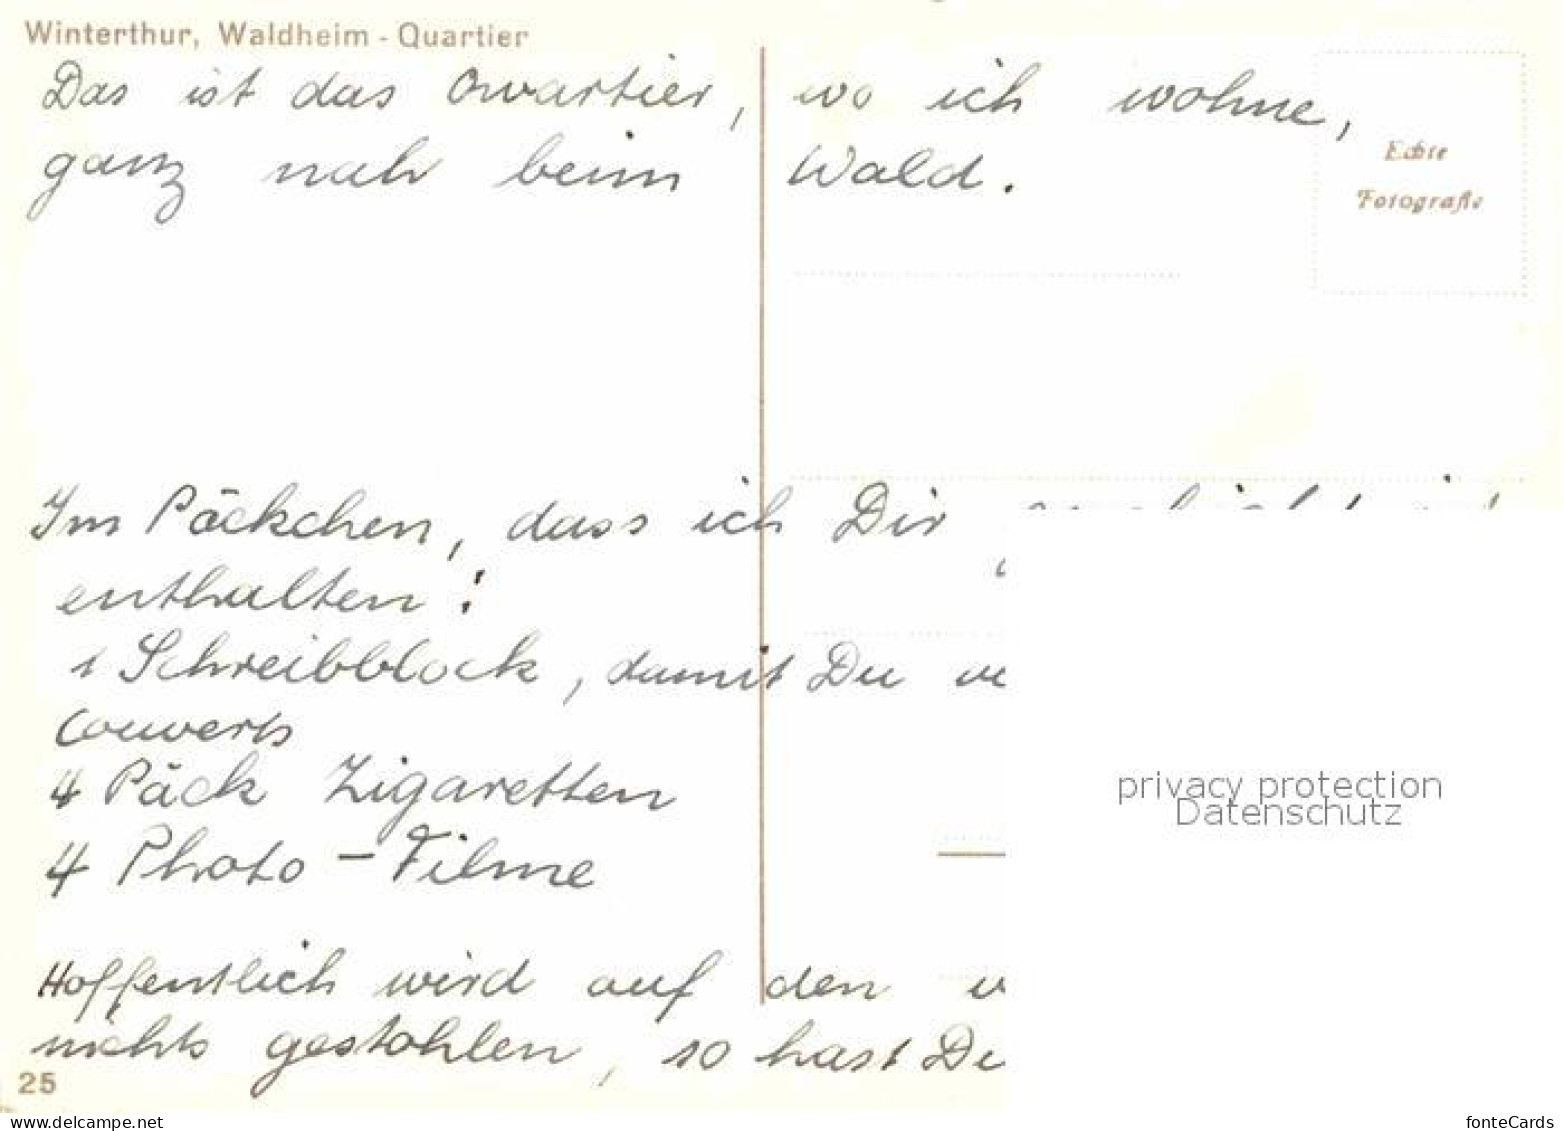 Winterthur, Waldheim - Quartier
Das ist das Quartier, wo ich wohne,
ganz nah beim Wald.
Echte
Fotografie
Im Päckchen, dass ich Dir
enthalten:
1 Schreibblock, damit Du
Couverts
4 Päck Zigaretten
4 Photo - Filme
privacy protection
Datenschutz
Hoffentlich wird auf den
nichts gestohlen, so hast
25
www.delcampe.net
fonteCards